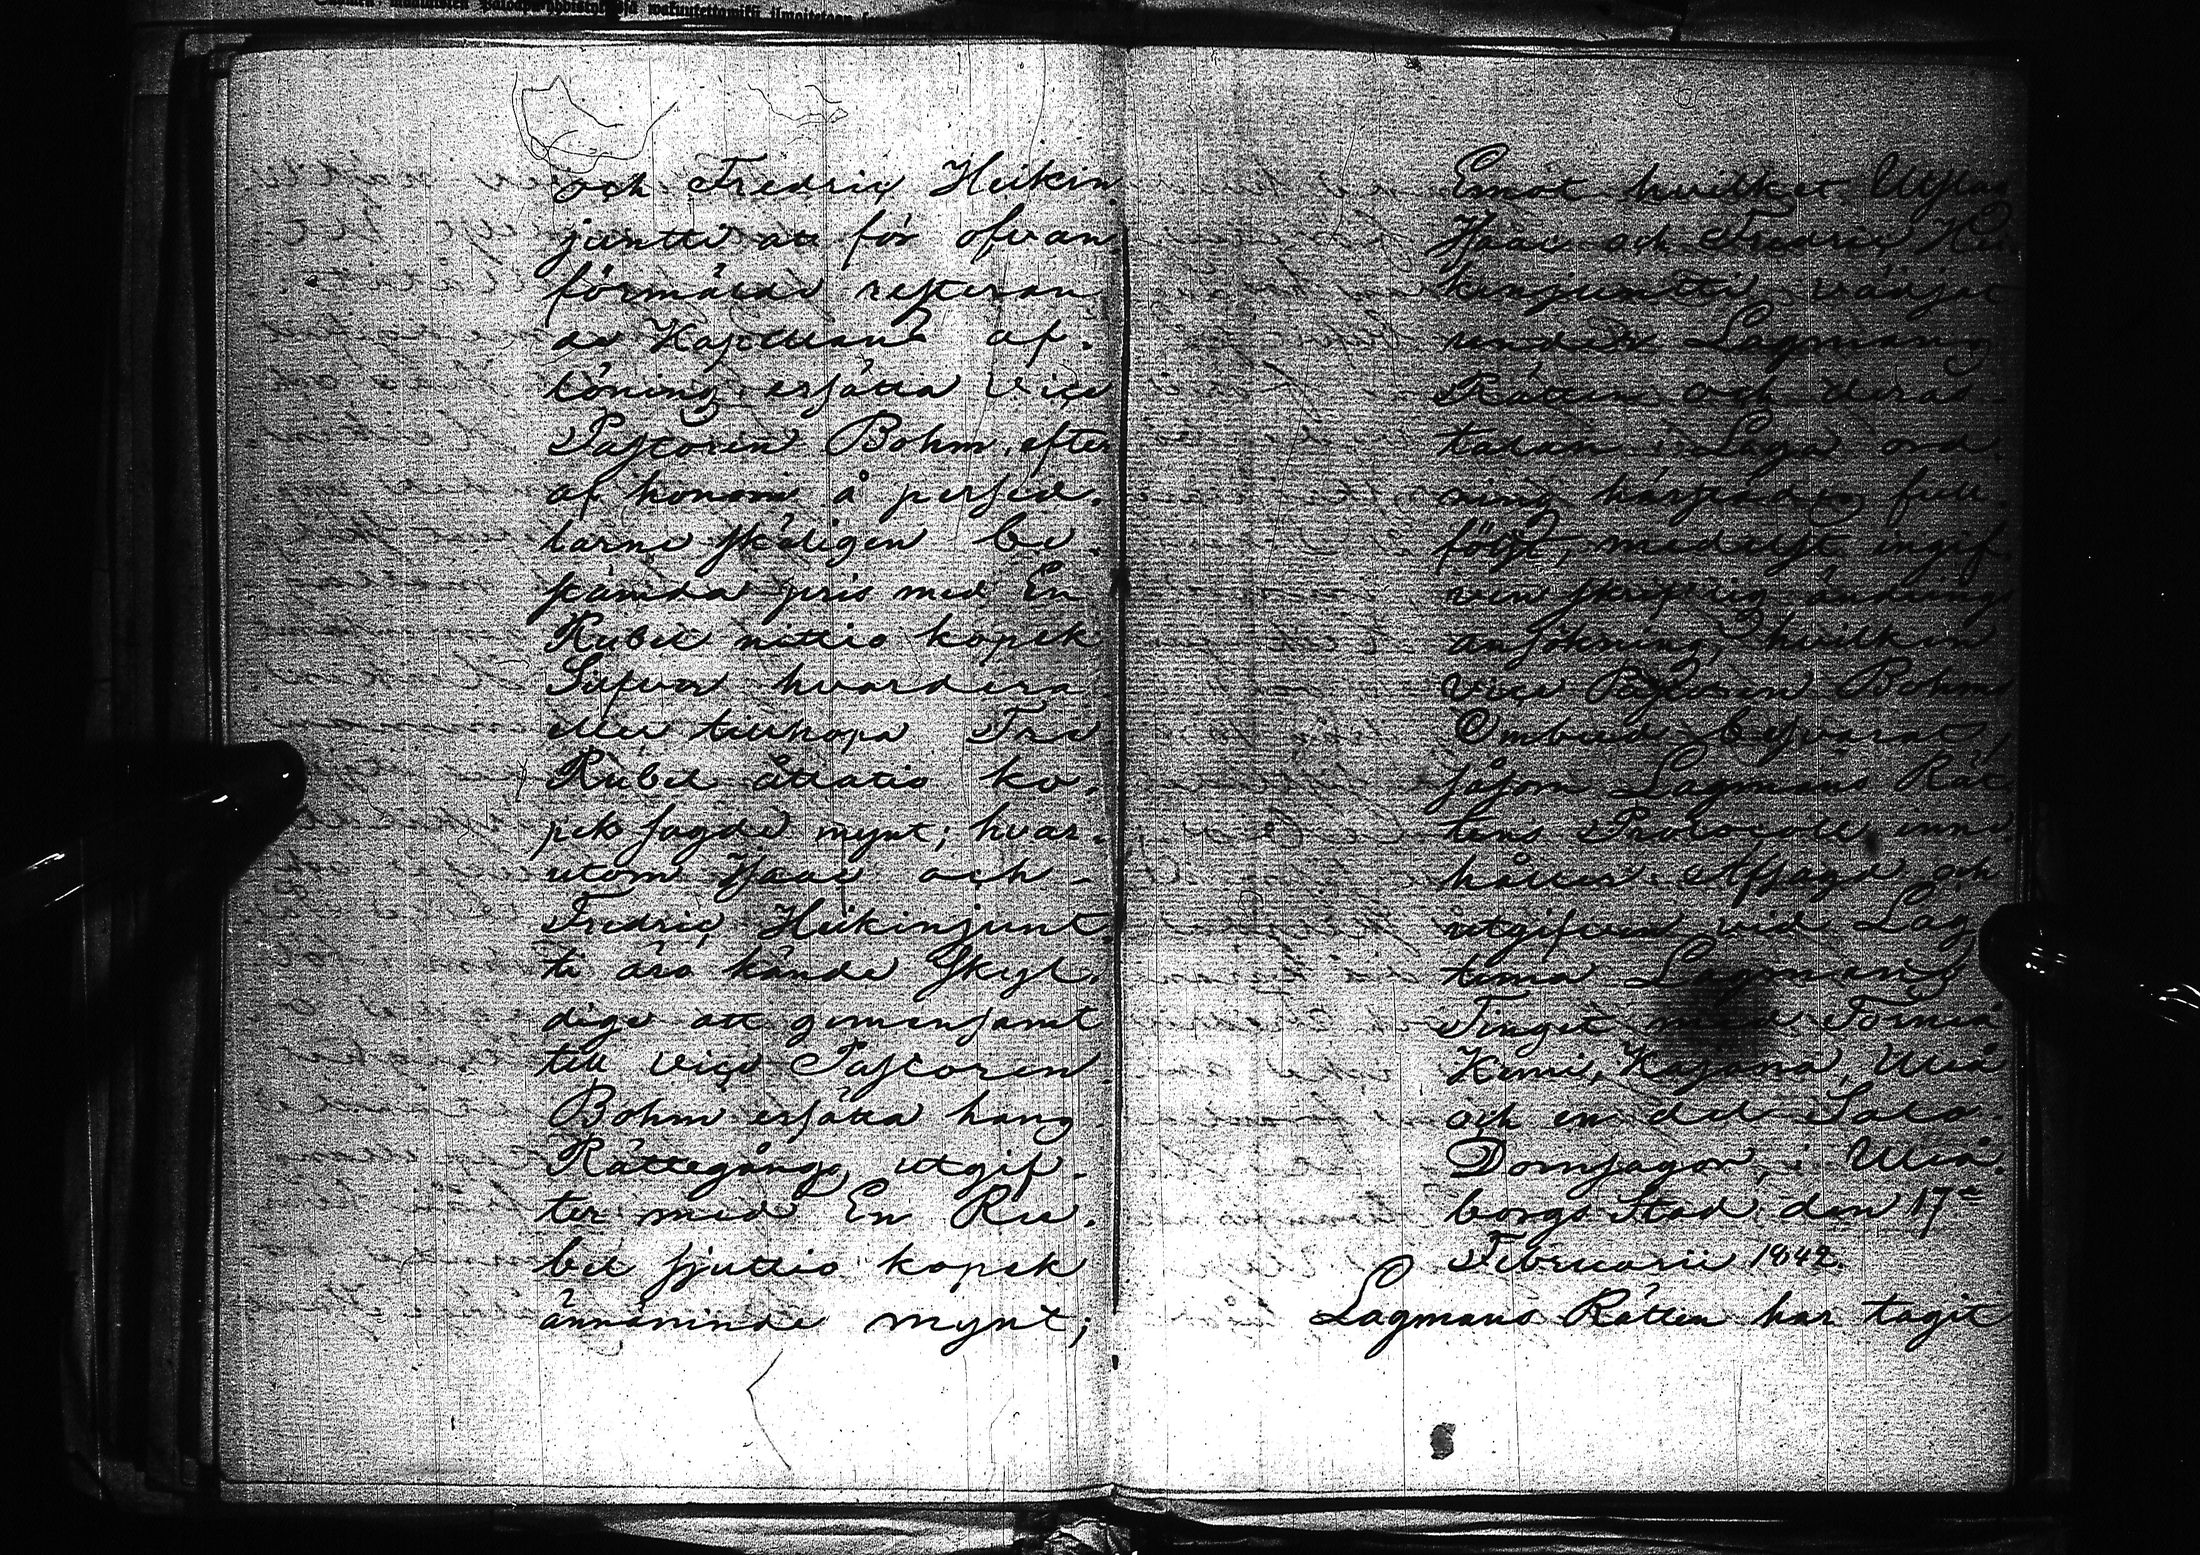 och Fredric Heikin
juntti att för ofvan
förmälde resteran
de Kapellans af-
löning ersätta Vice
Pastoren Bohm, efter
af honom å persed-
larne skäligen be-
stämda pris med En
Rubel nittio kopek
Silfver hvardera
eller tillhopa Tre
Rubel åttatio ko-
pek sagde mynt; hvar-
utom Isaac och
Fredric Heikinjunt
ti äro kände skyl-
dige att gemensamt
till Vice Pastoren
Bohm ersätta hans
Rättegångs utgif-
ter med En Ru-
bel sjuttio kopek
ännämnde mynt;
Emot hvilket Utslag
Isaac och Fredric Hei-
kinjuntti vädjat
under Lagmans
Rätten och deras
talan i Laga ord-
ning härstädes full-
följt, medelst ingif-
ven skriftlig ändrings
ansökning, hvilken
Vice Pastoren Bohms
Ombud besvarat,
såsom Lagmans Rät
tens Protocoll inne-
håller. Afsagd och
utgifven vid Lag
tima Lagmans
Tinget med Torneå
Kemi, Kajana, Uleå
och en del Salo
Domsagor, i Uleå-
borgs Stad den 17de
Februarii 1842.
Lagmans Rätten har tagit